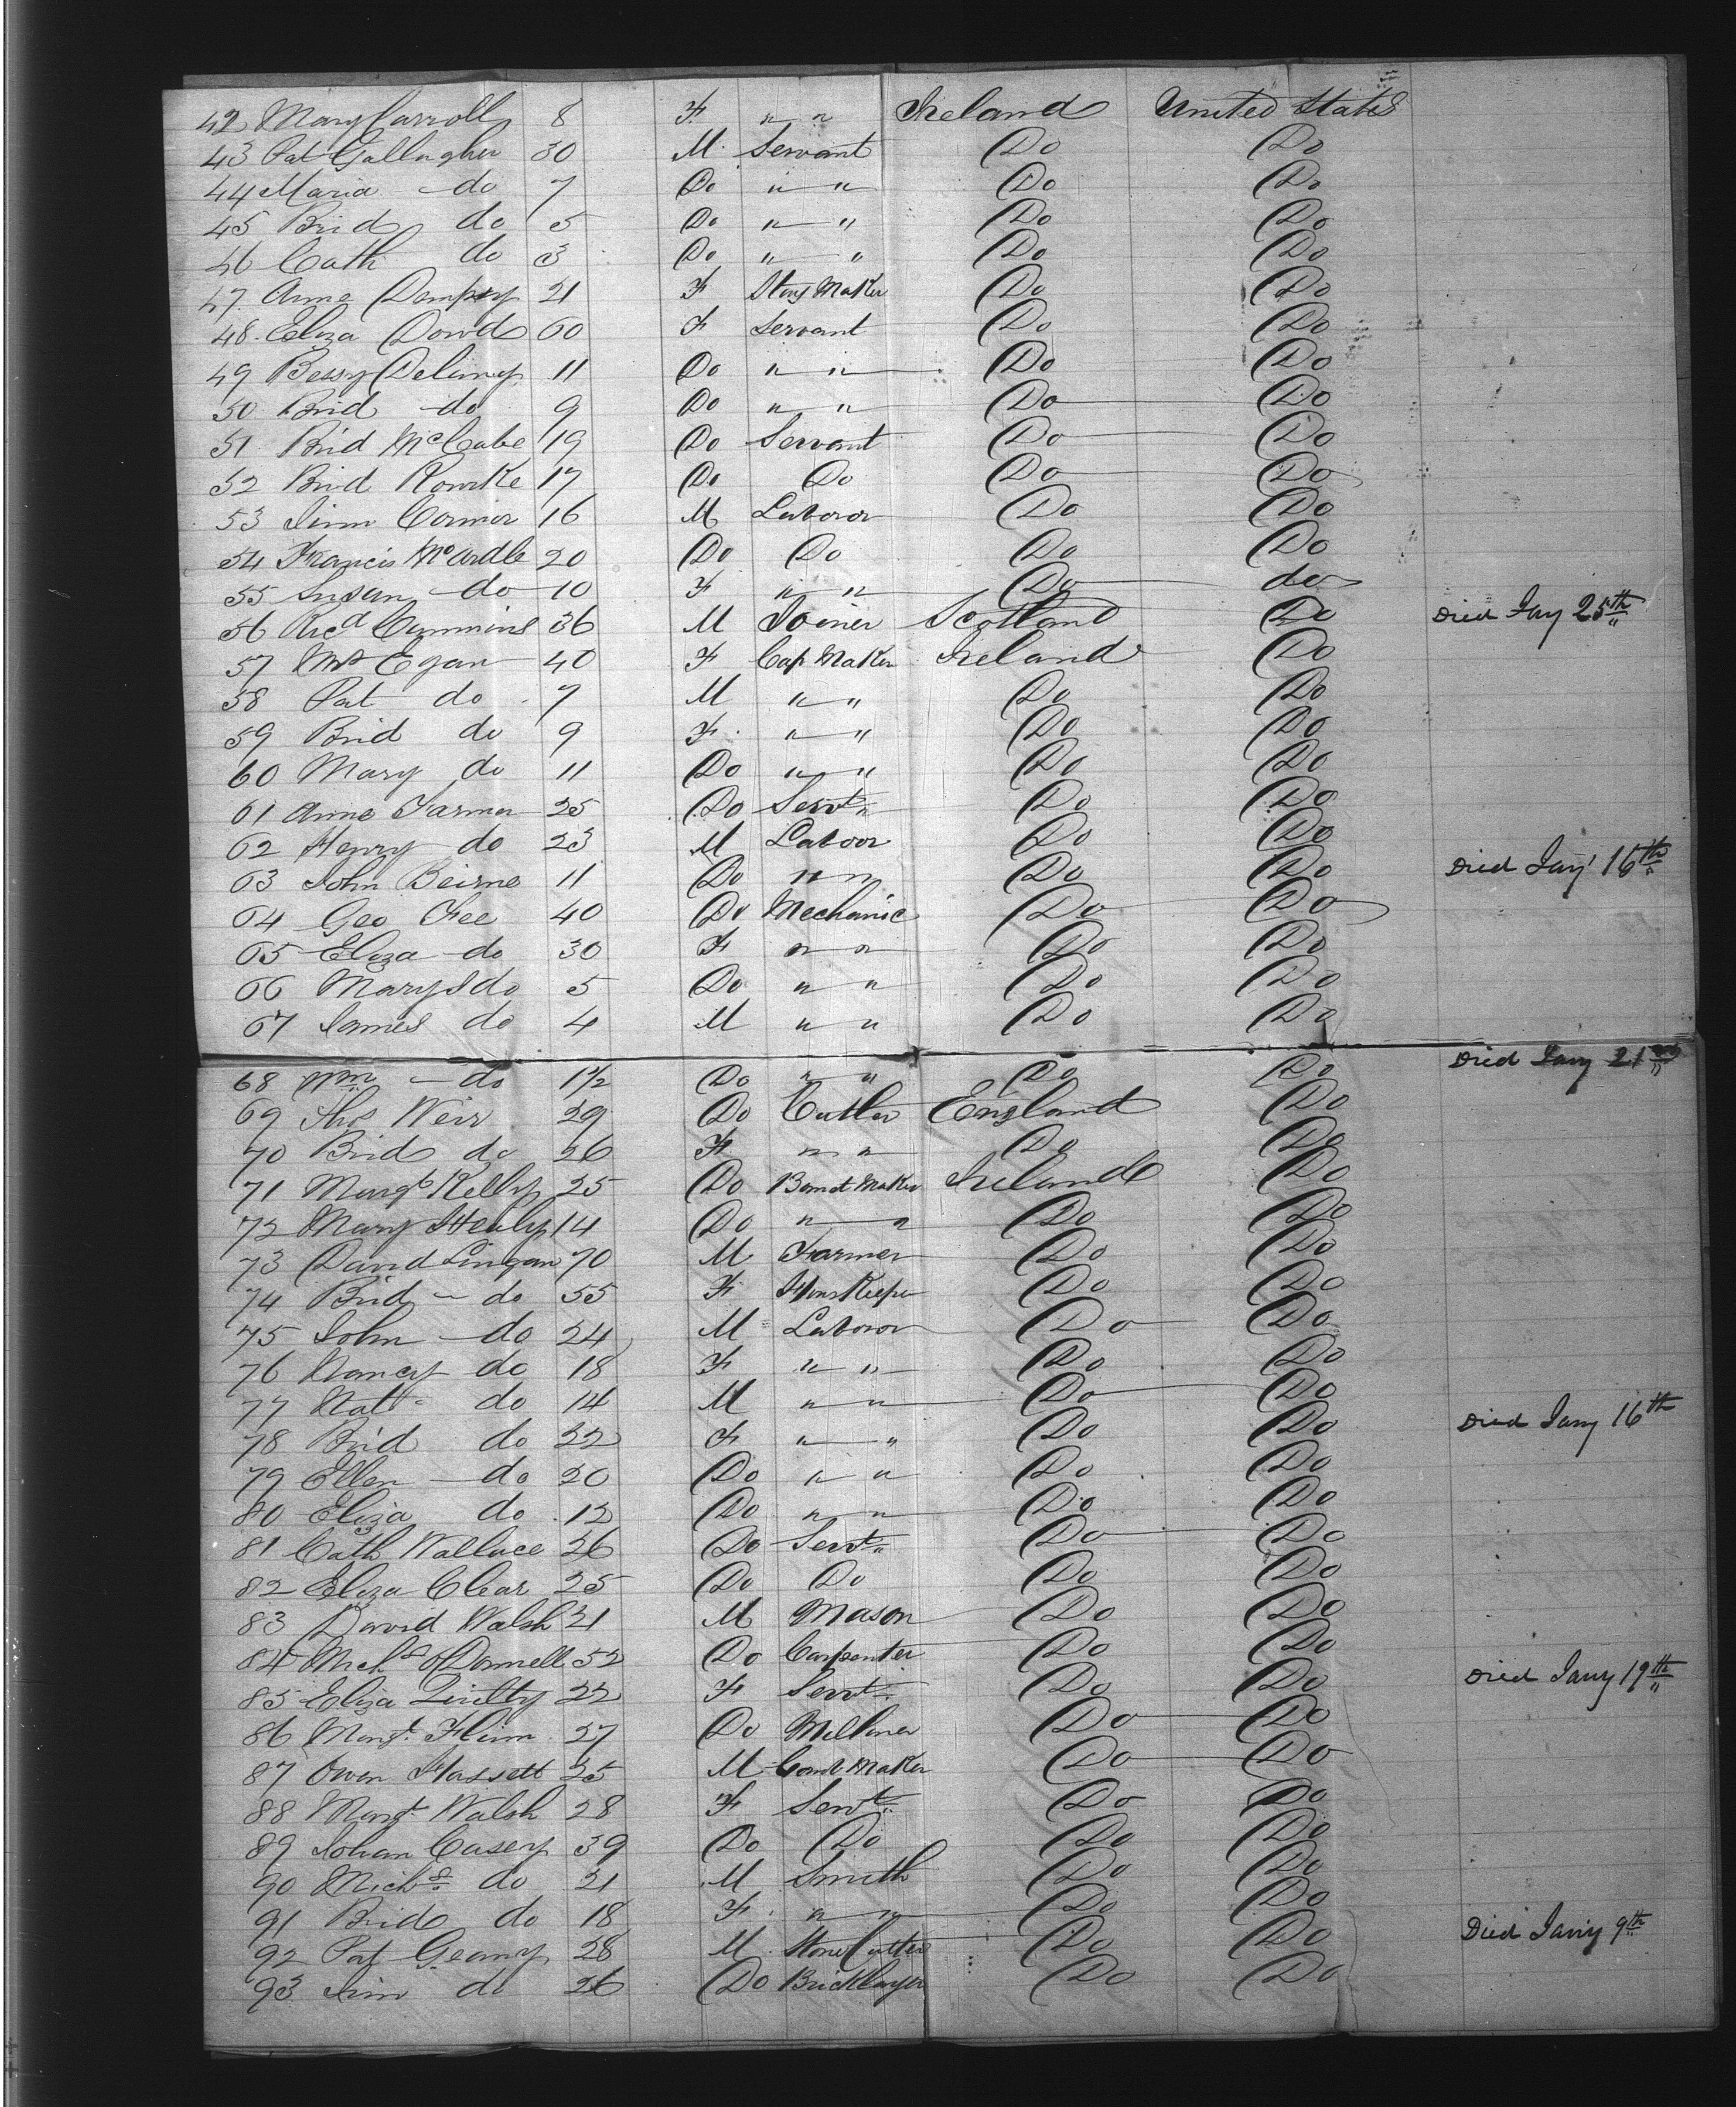 42 Mary Carroll 8 F " " Ireland United States
43 Pat Gallagher 30 M. Servant Do Do
44 Maria do 7 Do " " Do Do
45 Brid do 5 Do " " Do Do
46 Cath do 3 Do " " Do Do
47. Anne Dempsy 21 F Stay Maker Do Do
48. Eliza Dowd 60 F Servant Do Do
49 Bessy 11 Do " " Do Do
50 Brid do 9 Do " " Do Do
51 Brid McCabe 19 Do Servant Do Do
52 Brid Rourke 17 Do Do Do Do
53 Cormir 16 M Laboror Do Do
54 Francis McArdle 20 Do Do Do Do
55 Susan do 10 F " " Do do
56 Ricd Cummins 36 M Joiner Scotland Do Died Jay 25th
57 Mrs Egan 40 F Cap Maker Ireland Do
58 Pat do 7 M " " Do Do
59 Brid do 9 F. " " Do Do
60 Mary do 11 Do " " Do Do
61 Anne Farmer 25 Do Servt Do Do
62 Henry do 23 M Laboor Do Do
63 John Beirne 11 Do " " Do Do Died Jany 16th
64 Geo Fee 40 Do Mechanic Do Do
65 Eliza do 30 F " " Do Do
66 Mary do 5 Do " " Do Do
67 James do 4 M " " Do Do
68 Wm do 1½ Do " " Do Do Died Jany 21
69 Thos Weir 29 Do Cutler England Do
70 Brid do 26 F " " Do Do
71 Margt Kelly 25 Do Bonnet Maker Ireland Do
72 Mary Healy 14 Do " " Do Do
73 David Lingan 70 M Farmer Do Do
74 Brid do 55 F HousKeeper Do Do
75 John do 24 M Laboror Do Do
76 Nancy do 18 F " " Do Do
77 Nat do 14 M " " Do Do
78 Brid do 22 F " " Do Do Died Jany 16th
79 Ellen do 20 Do " " Do Do
80 Eliza do 12 Do " " Do Do
81 Cath Wallace 26 Do Servt Do Do
82 Eliza Clear 25 Do Do Do Do
83 David Walsh M Mason Do Do
84 Michl ODonnell 52 Do Carpenter Do Do
85 Eliza Quilty 22 F Servt Do Do Died Jany 19th
86 Margt. Flinn 27 Do Milliner Do Do
87 Owen Hassett 25 M Maker Do Do
88 Margt. Walsh 28 F Servt Do Do
89 Johan Casey 39 Do Do Do Do
90 Michl do 21 M Smith Do Do
91 Brid do 18 F. " " Do Do
92 Pat Geany 28 M. Stone Cutter Do Do Died Jany 9th
93 Jim do 26 Do Bricklayer Do Do